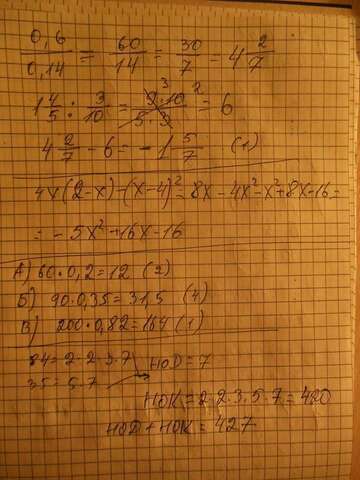 0,6/0,14 = 60/14 = 30/7 = 4 2/7
1 4/5 : 3/10 = 9·10/5·3 = 6
3 2
4 2/7 - 6 = - 1 5/7 (1)
4x(2-x)-(x-4)² = 8x - 4x² - x² + 8x - 16 =
= - 5x² + 16x - 16
А) 60·0,2 = 12 (2)
Б) 90·0,35 = 31,5 (4)
В) 200·0,82 = 164 (1)
84 = 2·2·3·7
35 = 5·7
НОД = 7
НОК = 2·2·3·5·7 = 420
НОД + НОК = 427